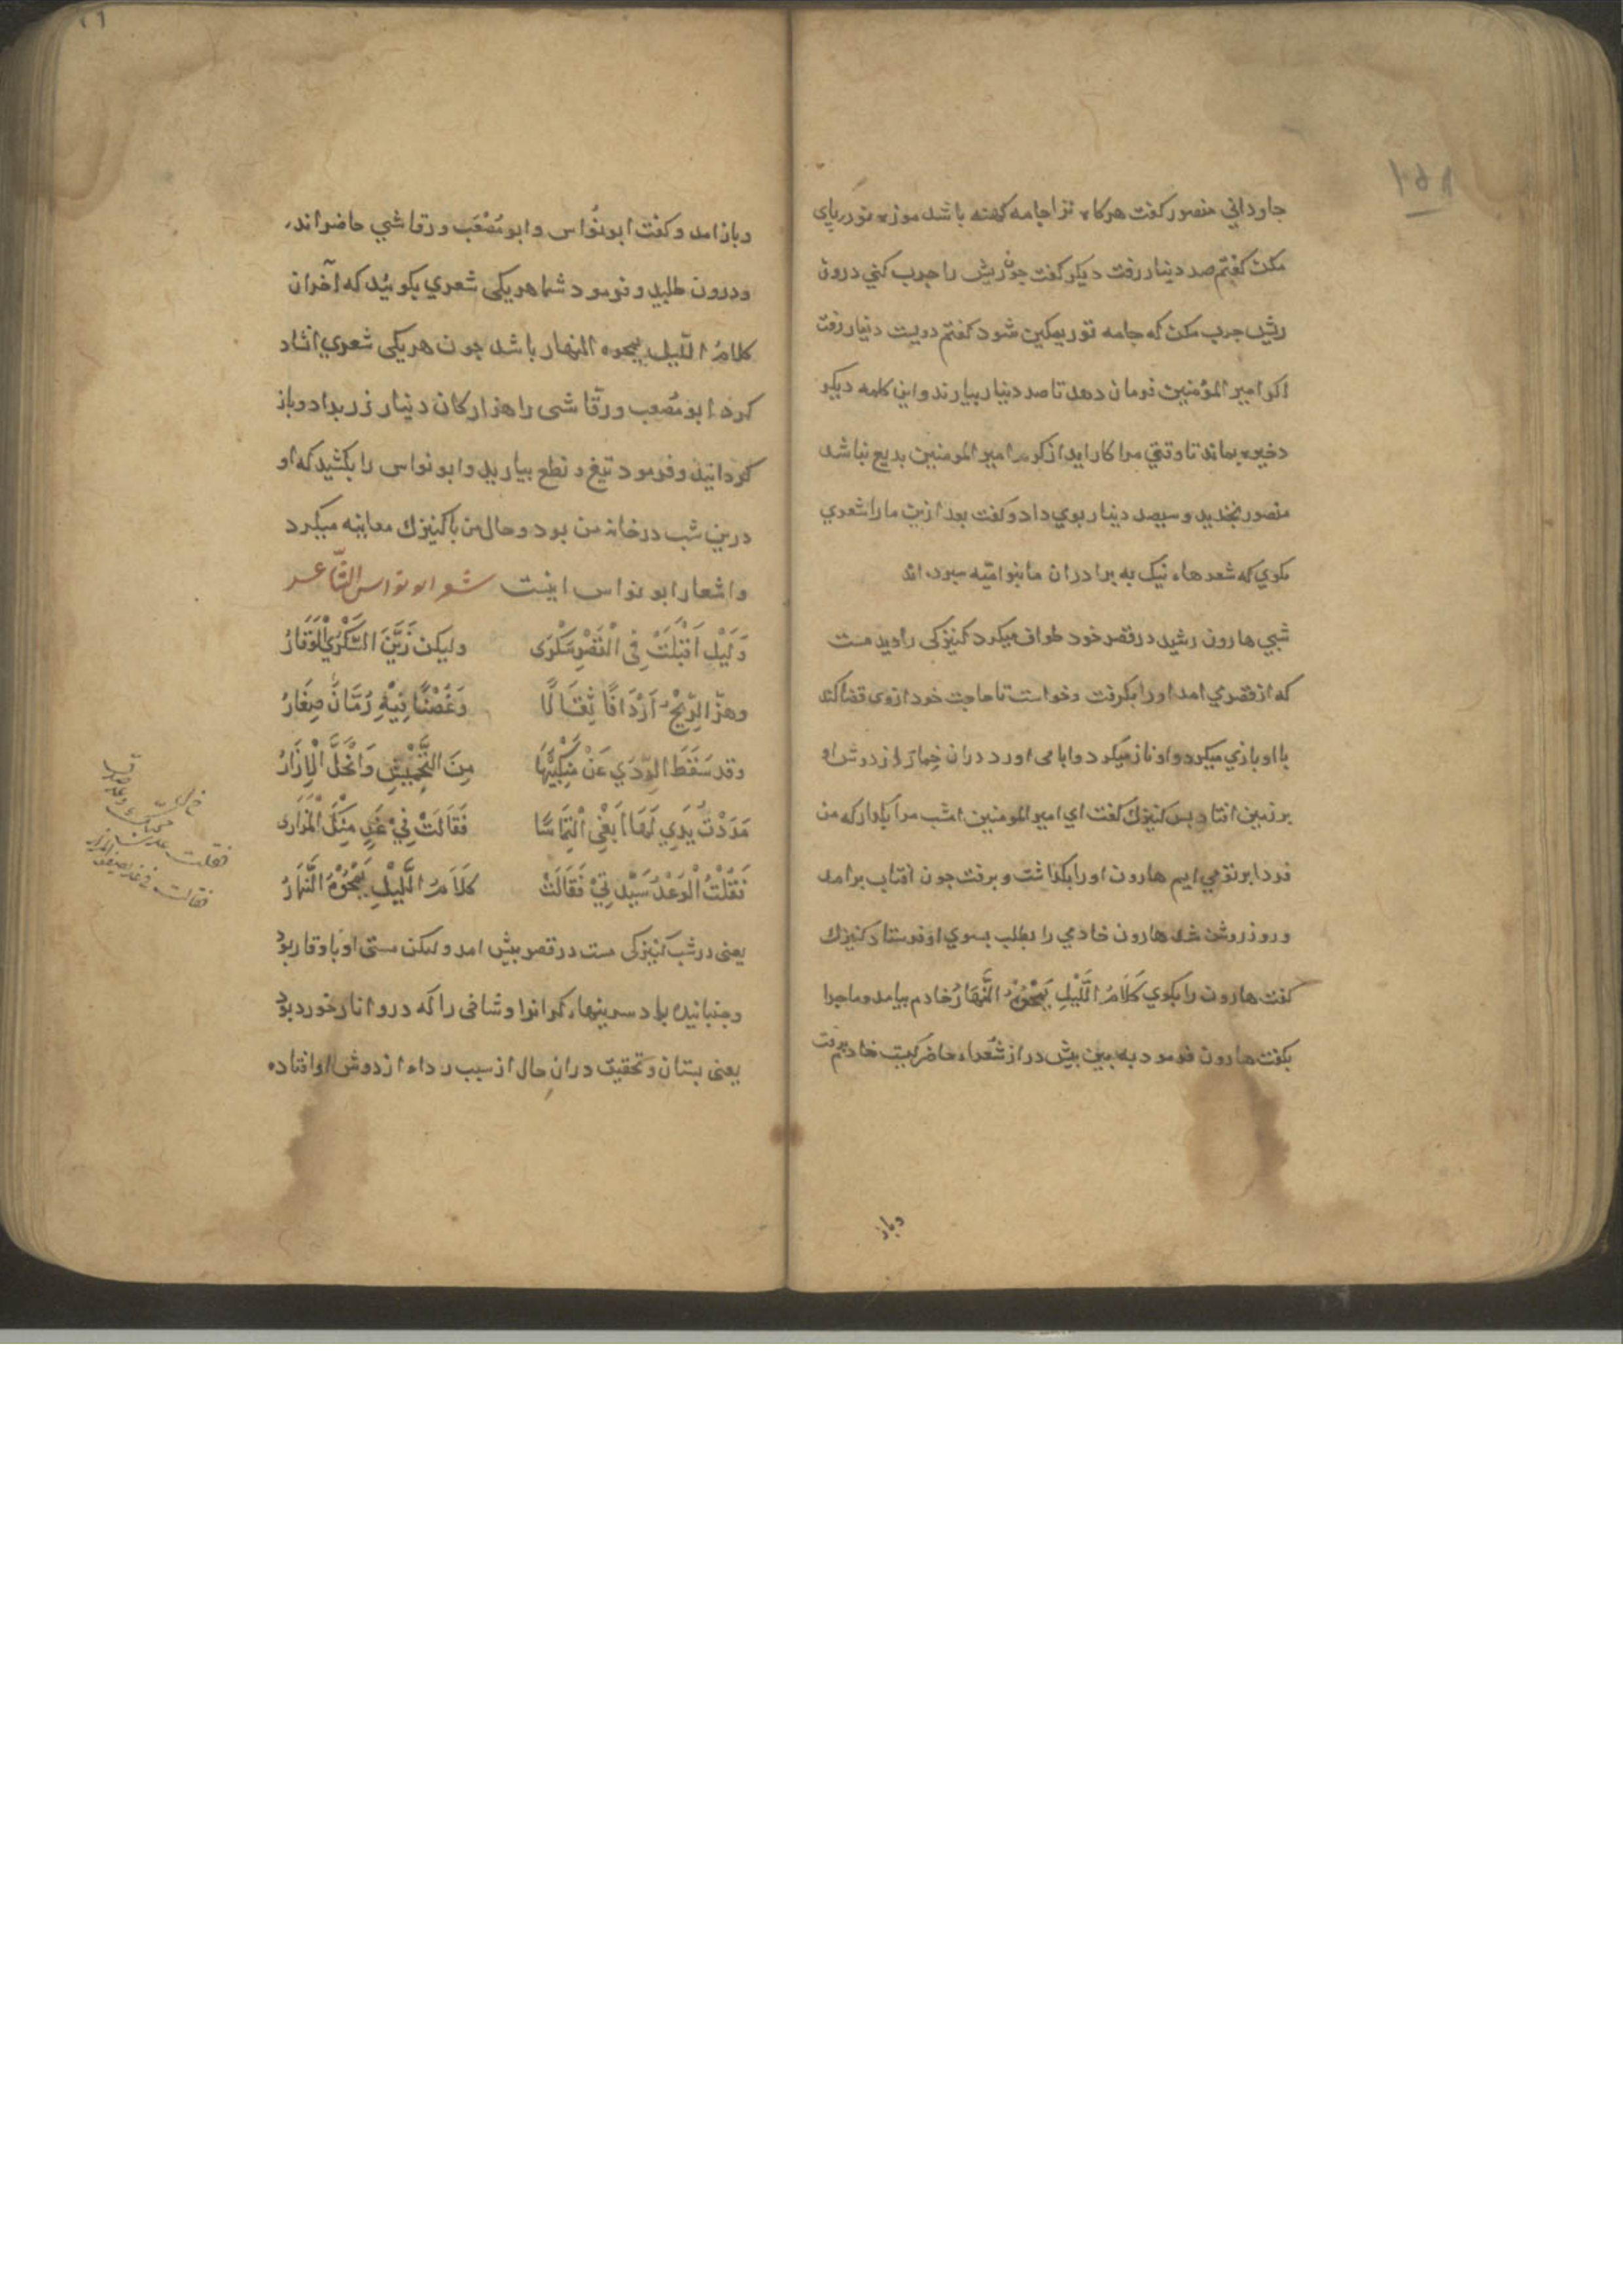 ۱۵۸
جاوداني منصور كفت هركاه ترا جامه كهنه باشد موزه نو درپای
مكن كفتم صد دينار رفت ديكر كفت چون ريش را چرب كني درون
ريش چرب مكن كه جامه تو ريمكين شود كفتم دويست دينار رفت
اكر امير المؤمنين فرمان دهد تا صد دينار بيارند و اين كلمه ديكر
ذخيره بماند تا وقتي مرا كار ايد از كرم امير المومنين بديع نباشد
منصور بخنديد و سيصد دينار بوي داد و كفت بعد ازين ما را شعري
بكوي كه شعرهاء نيك به برادران ما بنو اميّه سپرده اند
شبي هارون رشيد در قصر خود طواف ميكرد كنيزكی را ديد مست
كه از قصري امد او را بكرفت و خواست تا حاجت خود از وی قضا كند
با او بازي ميكرد و او ناز ميكرد و ابا می اورد دران خمار از دوش او
بر زمين افتاد پس كنيزك كفت اي امير المومنين امشب مرا بكذار كه من
فردا بر تو مي ايم هارون او را بكذاشت و برفت چون افتاب برامد
و روز روشن شد هارون خادمي را بطلب بسوي او فرستاد كنيزك
كفت هارون را بكوي كَلَامُ اللَّيْلِ يَمْحُوْهُ النَّهَارُ خادم بيامد و ماجرا
بكفت هارون فرمود به بين بيش در از شعراء حاضر كيست خادم برفت
وباز
۲۶
و باز امد و كفت ابو نُواس و ابو مُصْعَب و رقاشي حاضراند
و درون طلبيد و فرمود شما هر يكی شعري بكوئيد كه آخر ان
كلامُ اللّيل يمحوه النهار باشد چون هر يكی شعري انشاد
كرد ابو مُصعب و رقّاشی را هزاركان دينار زر بداد و باز
كردانيد و فرمود تيغ و نطع بياريد و ابو نواس را بكشيد كه او
درين شب در خانه من بود و حال من با كنيزك معاينه ميكرد
و اشعار ابو نواس اينست شعر ابو نواس الشّاعر
وَلَيْل اَقْبَلَتْ فِي الْقَصْرِ سَكْرَى وليكن زَيَّنَ السُّكْرَي الْوَقَارُ
وهزّ الرّيْحُ اَرْدَافًا ثِقَالًا وَغُصْنًا فِيْهِ رُمَّانٌ صِغَارُ
وقد سَقَطَ الرِّدَي عَنْ مَنْكِبَيْهَا مِنَ التَّجْمِيْشِ وَانْحَلَّ الْاِزَارُ
مَدَدْتُ يَدِي لَهَا اَبْغِى الْتِمَاسًا فَقَالَتْ فِيْ غَدٍ مِنْكَ الْمَزَار
فَقُلْتُ الْوَعْدُ سَيِّدَتِيْ فَقَالَتْ كَلَامُ اللَّيْلِ يَمْحُوْهُ النَّهَارُ
يعنی در شب كنيزكی مست در قصر پيش امد وليكن مستی او با وقار بود
و جنبانيده باد سرينهاء كرانرا و شاخی را كه درو انار خورد بود
يعنی پستان و تحقيق دران حال از سبب رداء از دوش او افتاده
فقلت
فقالت